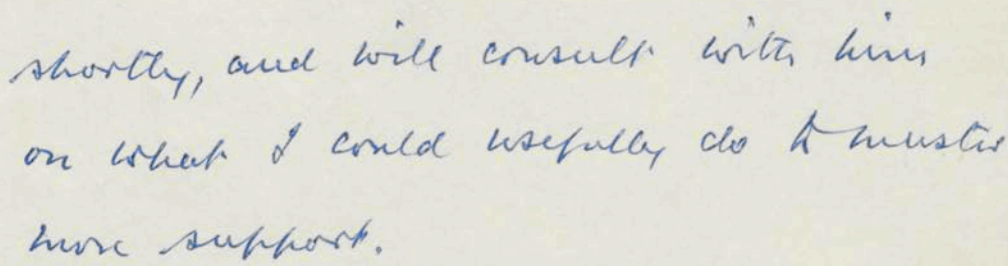 shortly, and will consult with him
on what I could usefully do to muster
more support.